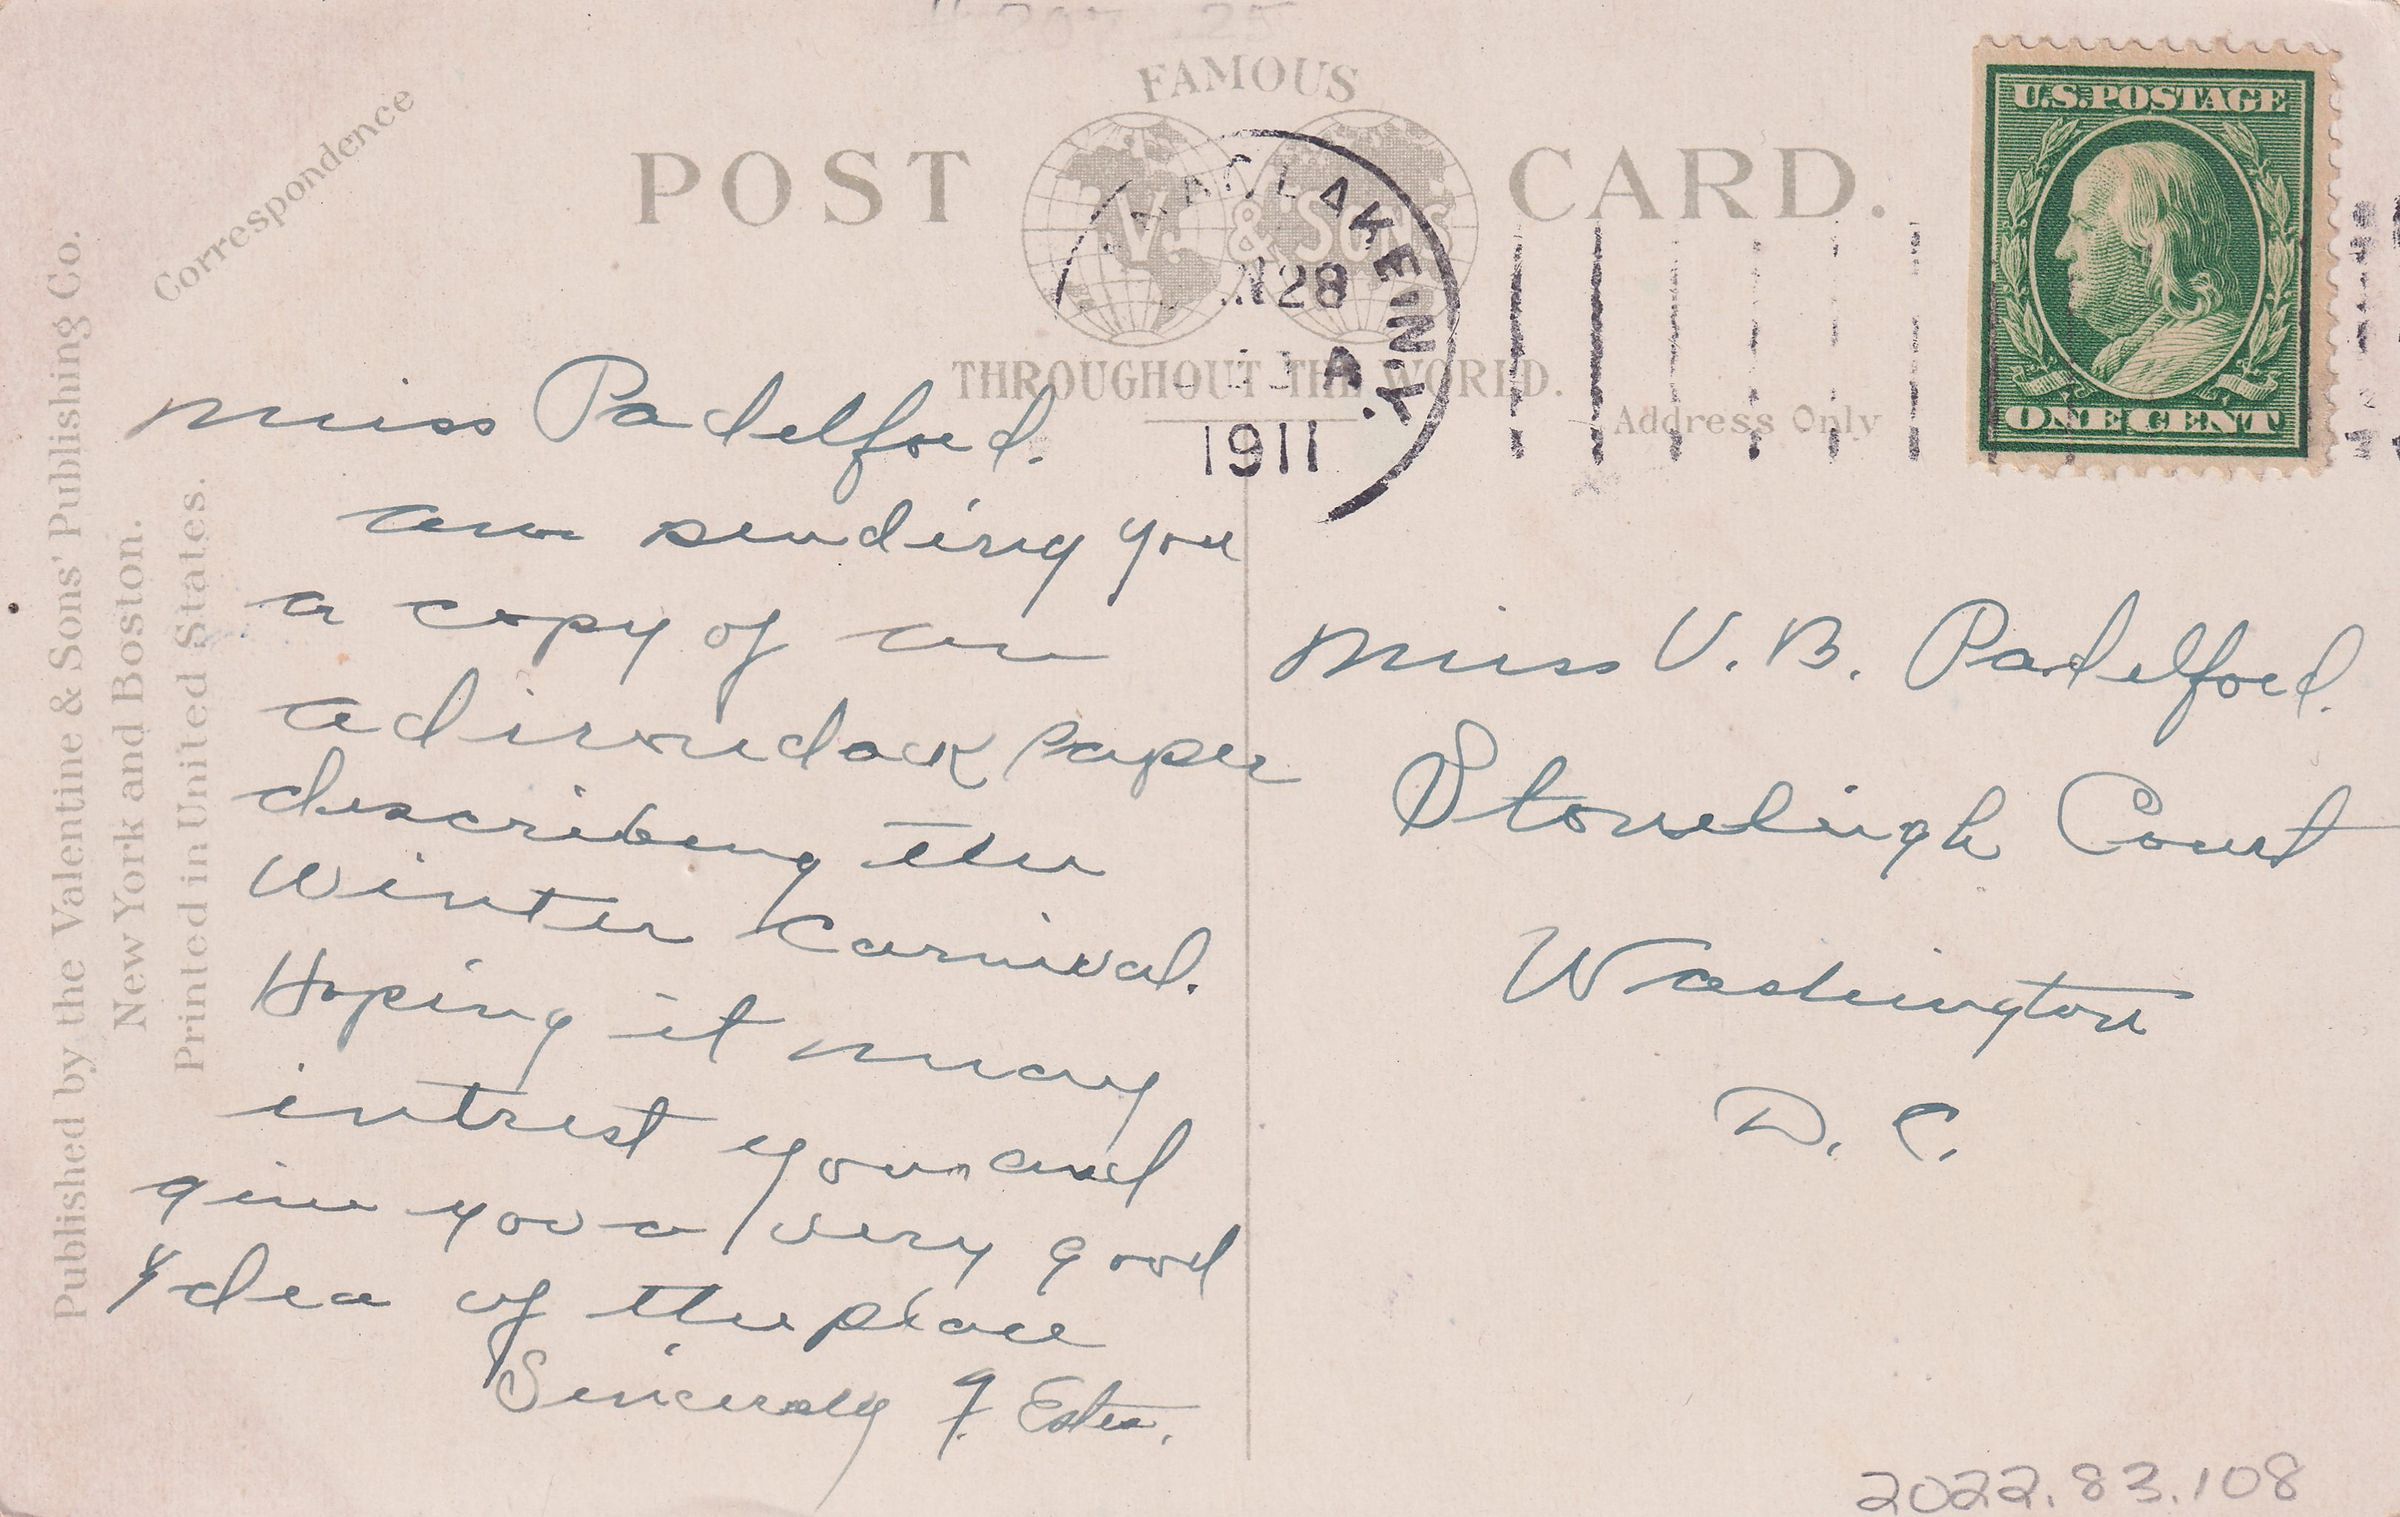 FAMOUS
POST CARD.
V. & SONS
THROUGHOUT THE WORLD.
Correspondence
Address Only
Published by the Valentine & Sons' Publishing Co.
New York and Boston.
Printed in United States.
U.S. POSTAGE
ONE CENT
LAKE, N.Y.
28
A
1911
Miss Padelford.
am sending you
a copy of an
adirondack paper
describing the
Winter Carnival.
Hoping it may
intrest you and
give you a very good
Idea of the place
Sincerely
Miss V. B. Padelford.
Stoneleigh Court
Washington
D. C.
2022.83.108